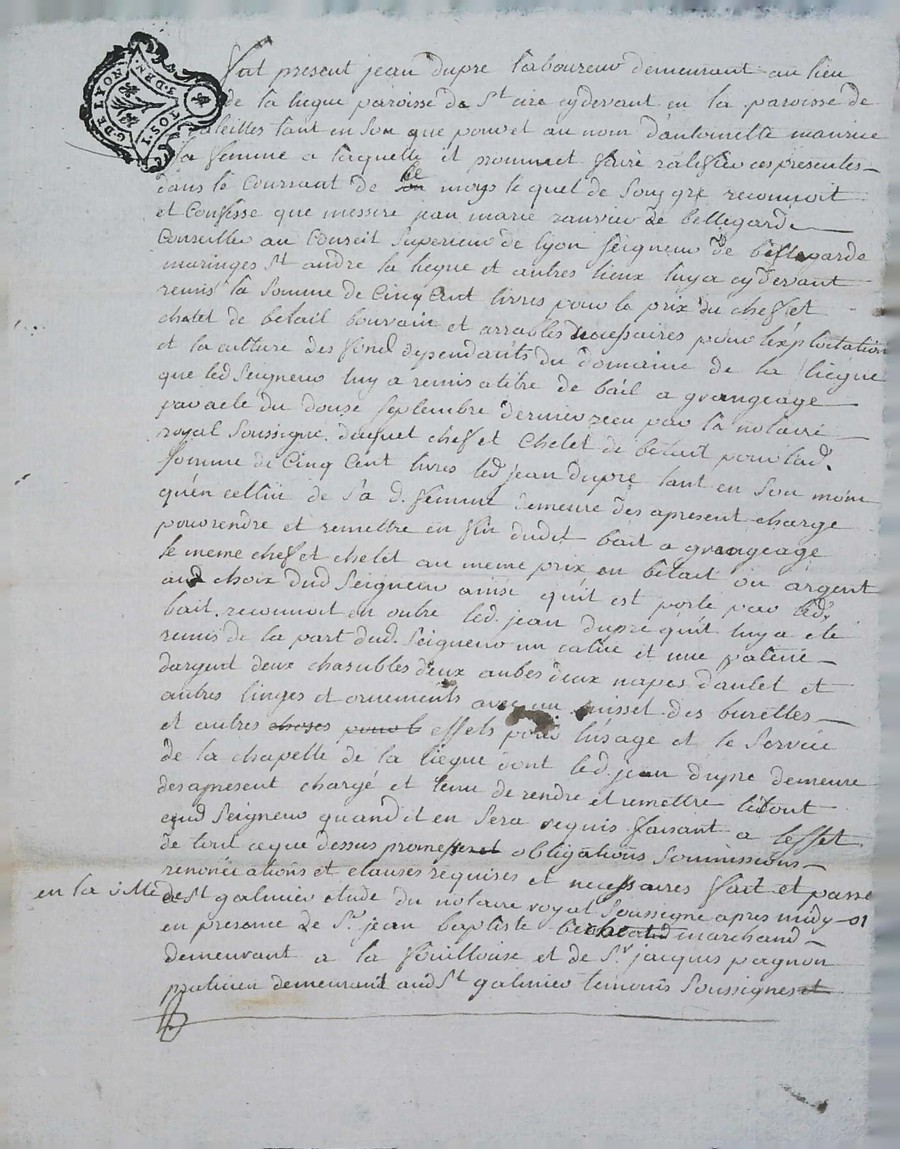 G. DE LYON. 3. DEN. TOS. I
fut present jean dupre laboureur demeurant au lieu
de la liegue paroisse de St cire cydevant en la paroisse de
tant en son que pour et au nom d'antoinette
sa femme a laquelle il prommet faire ratifier ces presentes
dans le courrant de ce moys lequel de son gre reconnoit
et confesse que messire jean marie ranvier de bellegarde
conseiller au conseil superieur de lyon seigneur de bellegarde
maringes St andre la liegue et autres lieux luy a cy devant
remis la somme de cinq cent livres pour le prix du chef et
chatel de betail bouvain et arrables necessaires pour l'exploitation
et la culture des fond dependants du domaine de la liegue
que led seigneur luy a remis a titre de bail a grangeage
par acte du douse septembre dernier recu par le notaire
royal soussigné. duquel chef et chetel de betail pour lad.
somme de cinq cent livres led jean dupre tant en son nom
qu'en celluy de sa d. femme demeure des apresent charge
pour rendre et remettre en fin dudit bail a grangeage
le meme chef et chetel au meme prix en betail ou argent
au choix dud seigneur ainsi qu'il est porte par led.
bail. reconnoit en outre led. jean dupre qu'il luy a été
remis de la part dud. seigneur un calice et une patene
dargent deux chasubles deux aubes deux napes d'autel et
autres linges et ornements avec un missel des burettes
et autres choses pour le effets pour l'usage et le service
de la chapelle de la liegue dont led. jean dupre demeure
des apresent chargé et tenu de rendre et remettre le tout
aud seigneur quand il en sera requis faisant a leffet
de tout ce que dessus promesses et obligations soumissions
renonciations et clauses requises et necessaires fait et passé
en la ville de St galmier etude du notaire royal soussigne apres midy
en presence de Sr. jean baptiste marchand
demeurant a la fouillouse et de Sr jacques pagnon
praticien demeurant aud St galmier temoins soussignes et